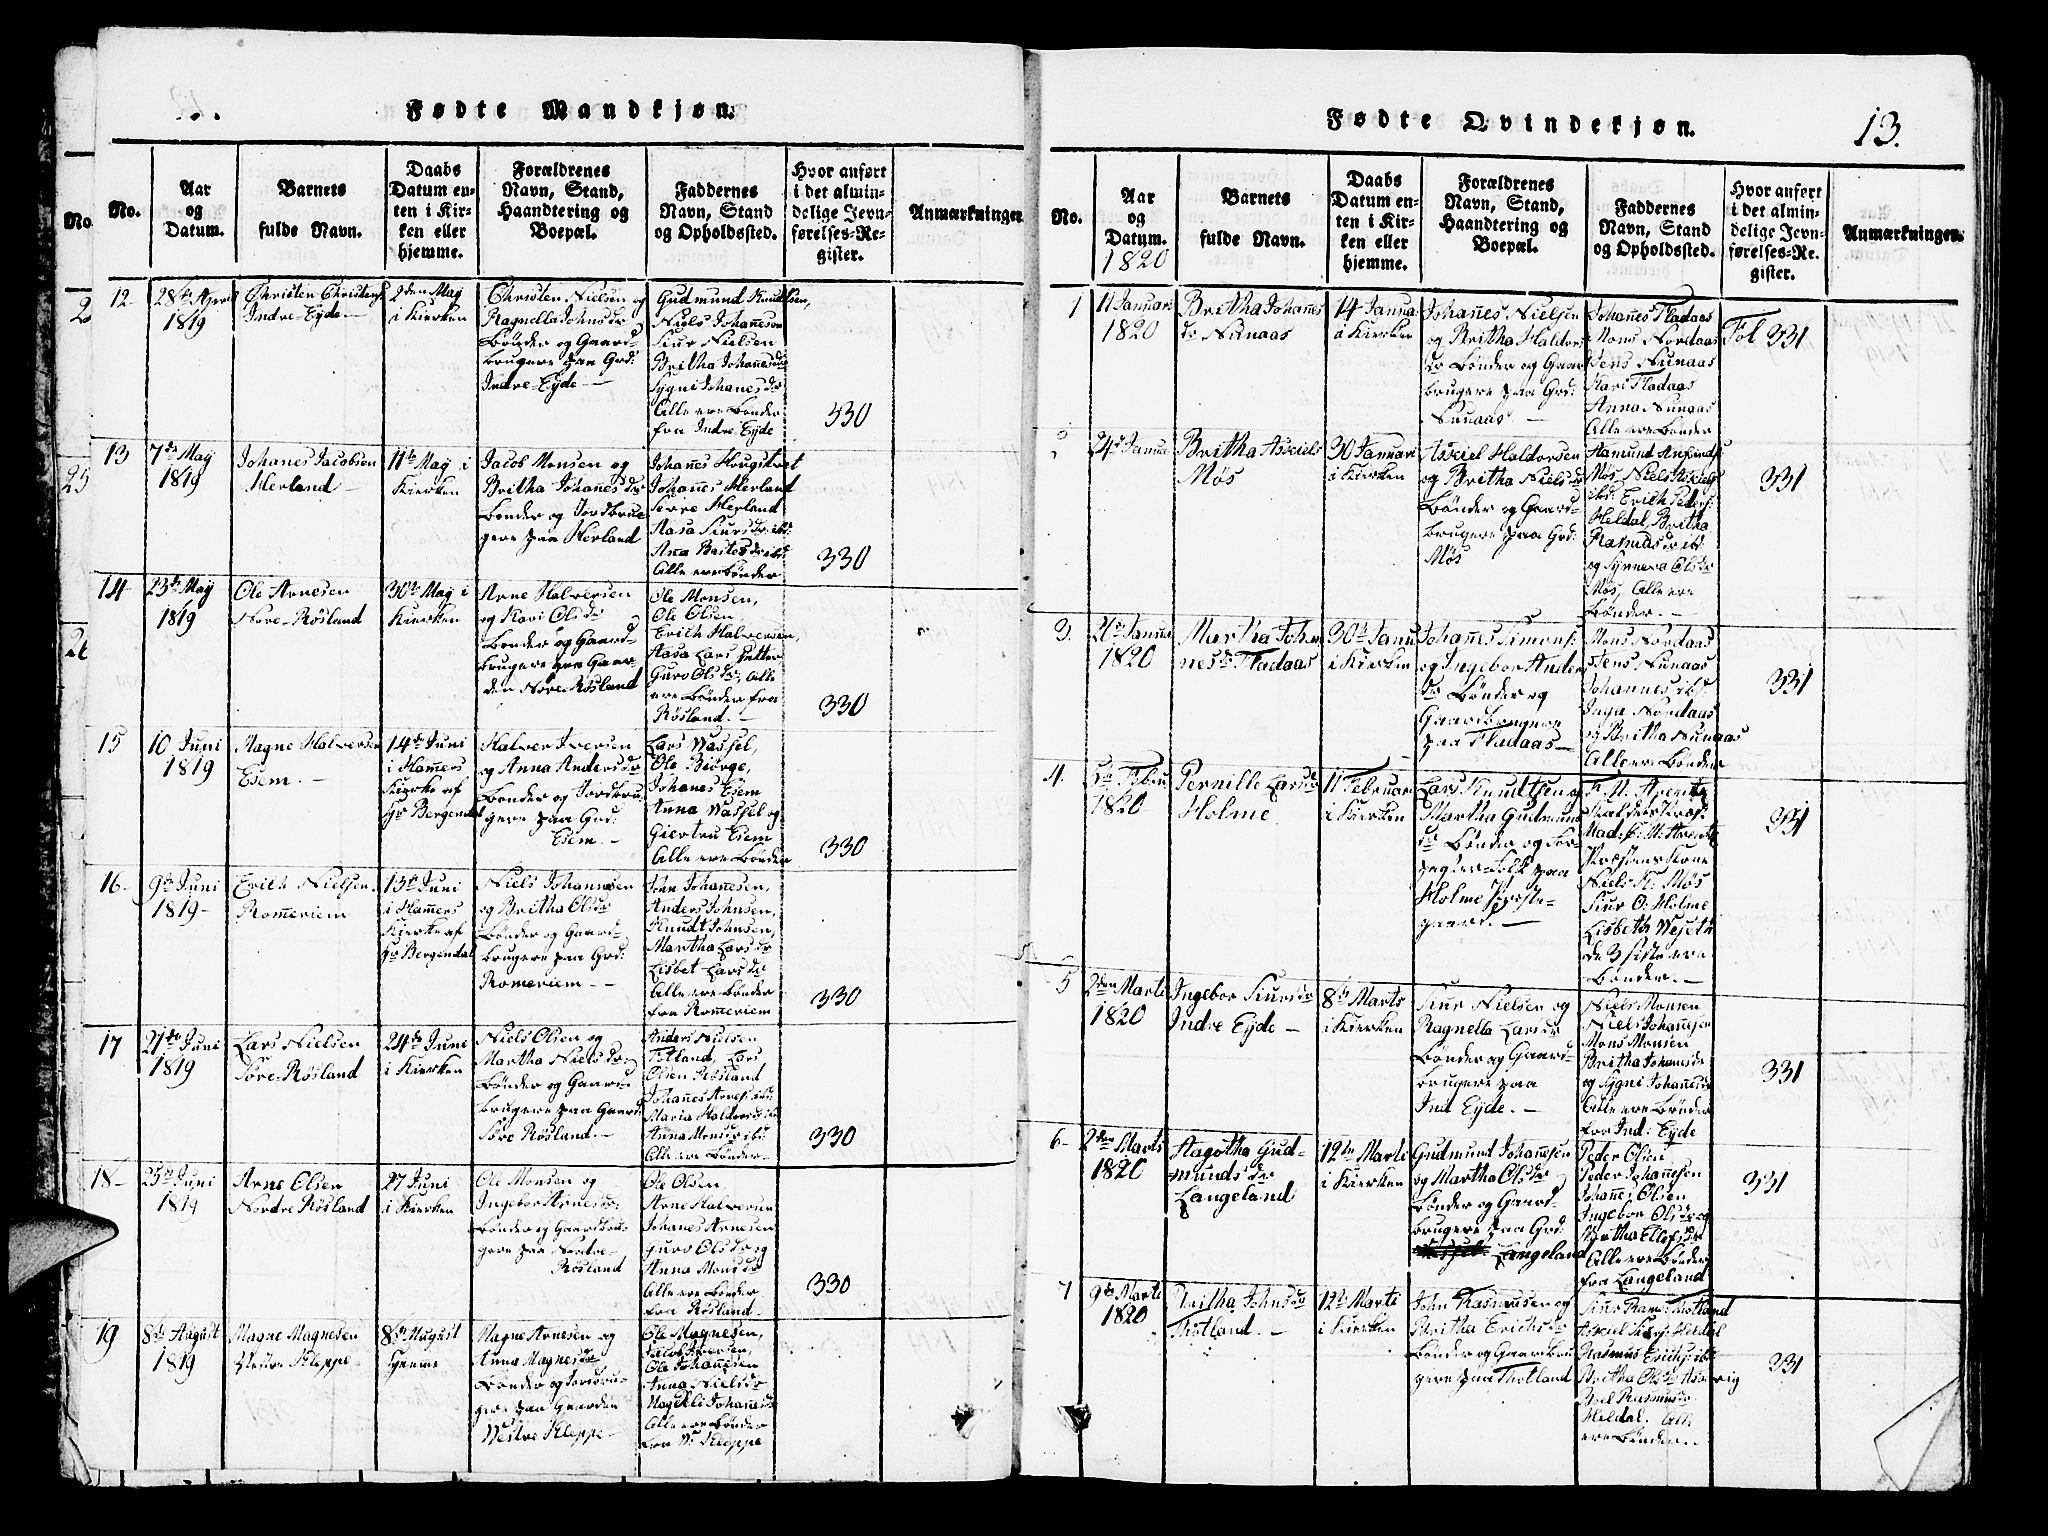 Fødte Mandkjøn.
No.
Aar
og
Datum.
Barnets
fulde Navn.
Daabs
Datum en-
ten i Kir-
ken eller
hjemme.
Forældrenes
Navn, Stand,
Haandtering og
Boepæl.
Faddernes
Navn, Stand
og Opholdssted.
Hvor anført
i det almin-
delige Jevn-
førelses-Re-
gister.
Anmærkninger
12
28de April
1819
Christen Christens:
Indre-Eyde
2den May
i Kierken
Christen Nielsen og
Ragnella Johnsdr
Bønder og Gaard-
brugere paa Grd:
Indre-Eyde
Gudmund Knudsen,
Niels Johannesen
Siur Nielsen
Britha Johannesdr
Sygni Johanesdr
Alle ere Bønder
fra Indre Eyde
330
13
7de May
1819
Johanes Jacobsen
Herland
11te May i
Kierken
Jacob Monsen og
Britha Johanesdr
Bønder og Jordbru-
gere paa Herland
Johanes Hougstvet
Johannes Herland
Sirre Herland
Aasa Siursdr ibd:
Ana Brites dr ibd:
Alle ere Bønder
330
14
23de May
1819
Ole Arnesen
Nore-Røsland
30te May i
Kierken
Arne Halversen
og Kari Olsdr
Bønder og Gaard-
brugere paa Gaar-
den Nore Røsland
Ole Monsen,
Ole Olsen,
Erich Halversen,
Aasa Lars Datter
Guro Olsdr, Alle
ere Bønder fra
Røsland.
330
15
10 Juni
1819
Magne Halversen
Esem.
14de Juni
i Hamers
Kierke af
Hr Bergendal
Halver Iversen
og Anna Andersdr
Bønder og Jordbru-
gere paa Grd:
Esem.
Lars Wassel,
Ole Biørge,
Johanes Esem
Anna Wassel og
Giertru Esem
Alle ere Bønder
330
16
9de Juni
1819
Erich Nielsen
Romeriem
13de Juni
i Hamers
Kierke af
Hr Bergendal
Niels Johannsen
og Britha Olsdr
Bønder og Gaard-
brugere paa Grd:
Romeriem
John Johanesen,
Anders Johnsen,
Knudt Johnsen,
Martha Larsdr
Lisbet Larsdr
Alle ere Bønder
fra Romeriem
330
17
21de Juni
1819
Lars Nielsen
Søre-Røsland
24de Juni
i Kierken
Niels Olsen og
Martha Nielsdr
Bønder og Gaard-
brugere paa Gaard:
Søre Røsland.
Anders Nielsen
Totland, Lars
Olsen Røsland
Johanes Arnes: ibd:
Maria Haldorsdr
Anna Monsdr ibd:
Alle ere Bønder
330
18
25de Juni
1819
Arne Olsen
Nordre Røsland
27 Juni
i Kierken
Ole Monsen og
Ingebor Arnesdr
Bønder og Gaardbru-
gere paa Nordre-
Røsland
Ole Olsen
Arne Halversen
Johanes Arnesen
Guro Olsdr og
Anna Monsdr
Alle ere Bønder
fra Røsland
330
19
8de August
1819
Magne Magnesen
Westre Kleppe
8de August
hjemme
Magne Arnesen og
Anna Magnesdr
Bønder og Jordbru-
gere paa gaarden
Westre Kleppe
Ole Magnesen,
Jacob Iversen,
Ole Johannesen
Anna Nielsdr
Magnkli Johanesdr
Alle ere Bønder
fra Ws Kleppe
Fødte Qvindekjøn.
13.
No.
Aar
og
Datum.
1820
Barnets
fulde Navn.
Daabs
Datum en-
ten i Kir-
ken eller
hjemme.
Forældrenes
Navn, Stand,
Haandtering og
Boepæl.
Faddernes
Navn, Stand
og Opholdssted.
Hvor anført
i det almin-
delige Jevn-
førelses-Re-
gister.
Anmærkninger.
1
11 Januari
1820
Britha Johanes
dr Nunaas
14 Janua
i Kierken
Johanes Nielsen
og Britha Haldors
dr Bønder og Gaar
brugere paa Grd:
Nunaas
Johanes Fladaas
Mons Nordaas
Jens Nunaas
Kari Fladaas
Anna Nunaas
Alle ere Bønder
Fol 331
2
24d Janua
Britha Askiels
Møs
30 Januari
i Kierken
Askiel Haldorsen
og Britha Nielsdr
Bønder og Gaard-
brugere paa Grd:
Møs
Hamund Anfinds:
Møs, Niels Askiels
ibd: Erich Peders:
Heldal, Britha
Rasmusdr ibd:
og Synneva Olsdr
Møs, Alle ere
Bønder.
331
3.
21de Janua
1820
Martha Johan
nesdr Fladaas
30te Janu
i Kierken
Johanes Simons:
og Ingebor Anders
dr Bønder og
Gaardbrugere
paa Fladaas
Mons Nordaas
Jens Nunaas
Johannes ibd:
Inga Nordaas
og Britha Nunaas
Alle ere Bønder
331
4.
5te Febru
1820
Pernille Larsdr
Holme
11 Februari
i Kierken
Lars Knudtsen og
Martha Gudmunds
dr Bønder og For-
pagter-Folk paa
Holme Præste-
gaard.
F: M: Arentz
Mad: F: M: Arentz
Præstens Kone
Niels K: Møs
Siur O: Holme
Lisbeth Wejeth
de 3 siste ere
Bønder.
331
5
2den Marti
1820
Ingebor Siursdr
Indre Eyde
8de Marts
i Kierken
Siur Nielsen og
Ragnella Larsdr
Bønder og Gaard-
brugere paa
Ind Eyde.
Niels Monsen
Niels Johanesen
Mons Monsen
Britha Johansdr
og Sygni Johanesdr
Alle ere Bønder
fra Ind: Eyde
331
6
2den Marts
1820
Aagotha Gud-
mundsdr
Langeland
12te Marti
i Kierken
Gudmund Johannesen
og Martha Olsdr
Bønder og Gaard-
brugere paa Grd:
Langeland
Peder Olsen
Peder Johannesen
Johanes Olsen
Ingebor Olsdr og
Martha Ellefsdr
Alle ere Bønder
fra Langeland
331
7
9de Marti
1820
Britha Johnsdr
Thotland.
12te Marti
i Kierken
John Rasmusen og
Britha Erichsdr
Bønder og Gaardbru
gere paa Thotland
Siur Rams: Thotland
Askiel Heldal
Rasmus Erichs: ibd
Britha Olsdr
Rasmusdr
Heldal. Alle
ere Bønder.
331